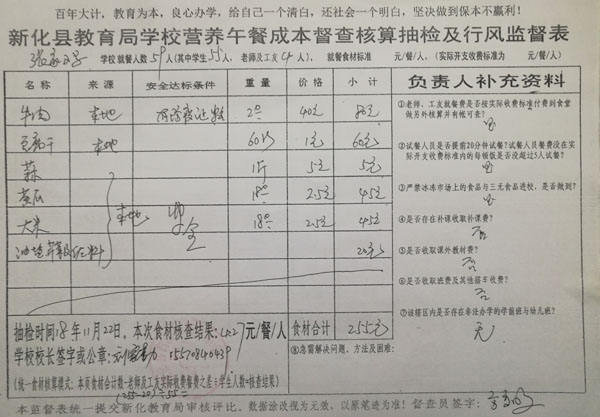 百年大计,教育为本,良心办学,给自己一个清白,还社会一个明白,坚决做到保本不赢利!
新化县教育局学校营养午餐成本督查核算抽检及行风监督表
学校就餐人数59人(其中学生55人,老师及工友4人),就餐食材标准 元/餐/人,(实际开支收费标准为 元/餐/人)
名称 来源 安全达标条件 重量 价格 小计 负责人补充资料
牛肉 本地 2斤 40元 80元
豆腐干 本地 60 1元 60元
蒜 1斤 5元 5元
黄瓜 18斤 2.5元 45元
大米 本地 安全 18斤 2.5元 45元
20元
①老师、工友就餐费是否按实际收费标准付费到食堂做另外核算并有帐可查?
是
②试餐人员是否提前20分钟试餐?试餐人员餐费没在实际开支收费标准内的每顿饭是否没超过5人试餐?
是
③严禁冰冻市场上的食品与三无食品进校,是否做到?
是
④是否存在补课收取补课费?
否
⑤是否收取课外教材费?
否
⑥是否收取班费及其他搭车收费?
否
⑦该辖区内是否存在非法办学的学前班与幼儿班?
无
抽检时间18年11月22日,本次食材核查结果:4.27元/餐/人 食材合计 255元
学校校长签字或公章: 15570840439
⑧急需解决问题、方法及困难:
(统一食材核算模式:本页食材合计数-老师及工友实际收费餐费之差÷学生人数=核查结果)
(255-20)÷55=
本监督表统一提交新化教育局审核评比,数据涂改视为无效,以原笔迹为准!督查员签字: